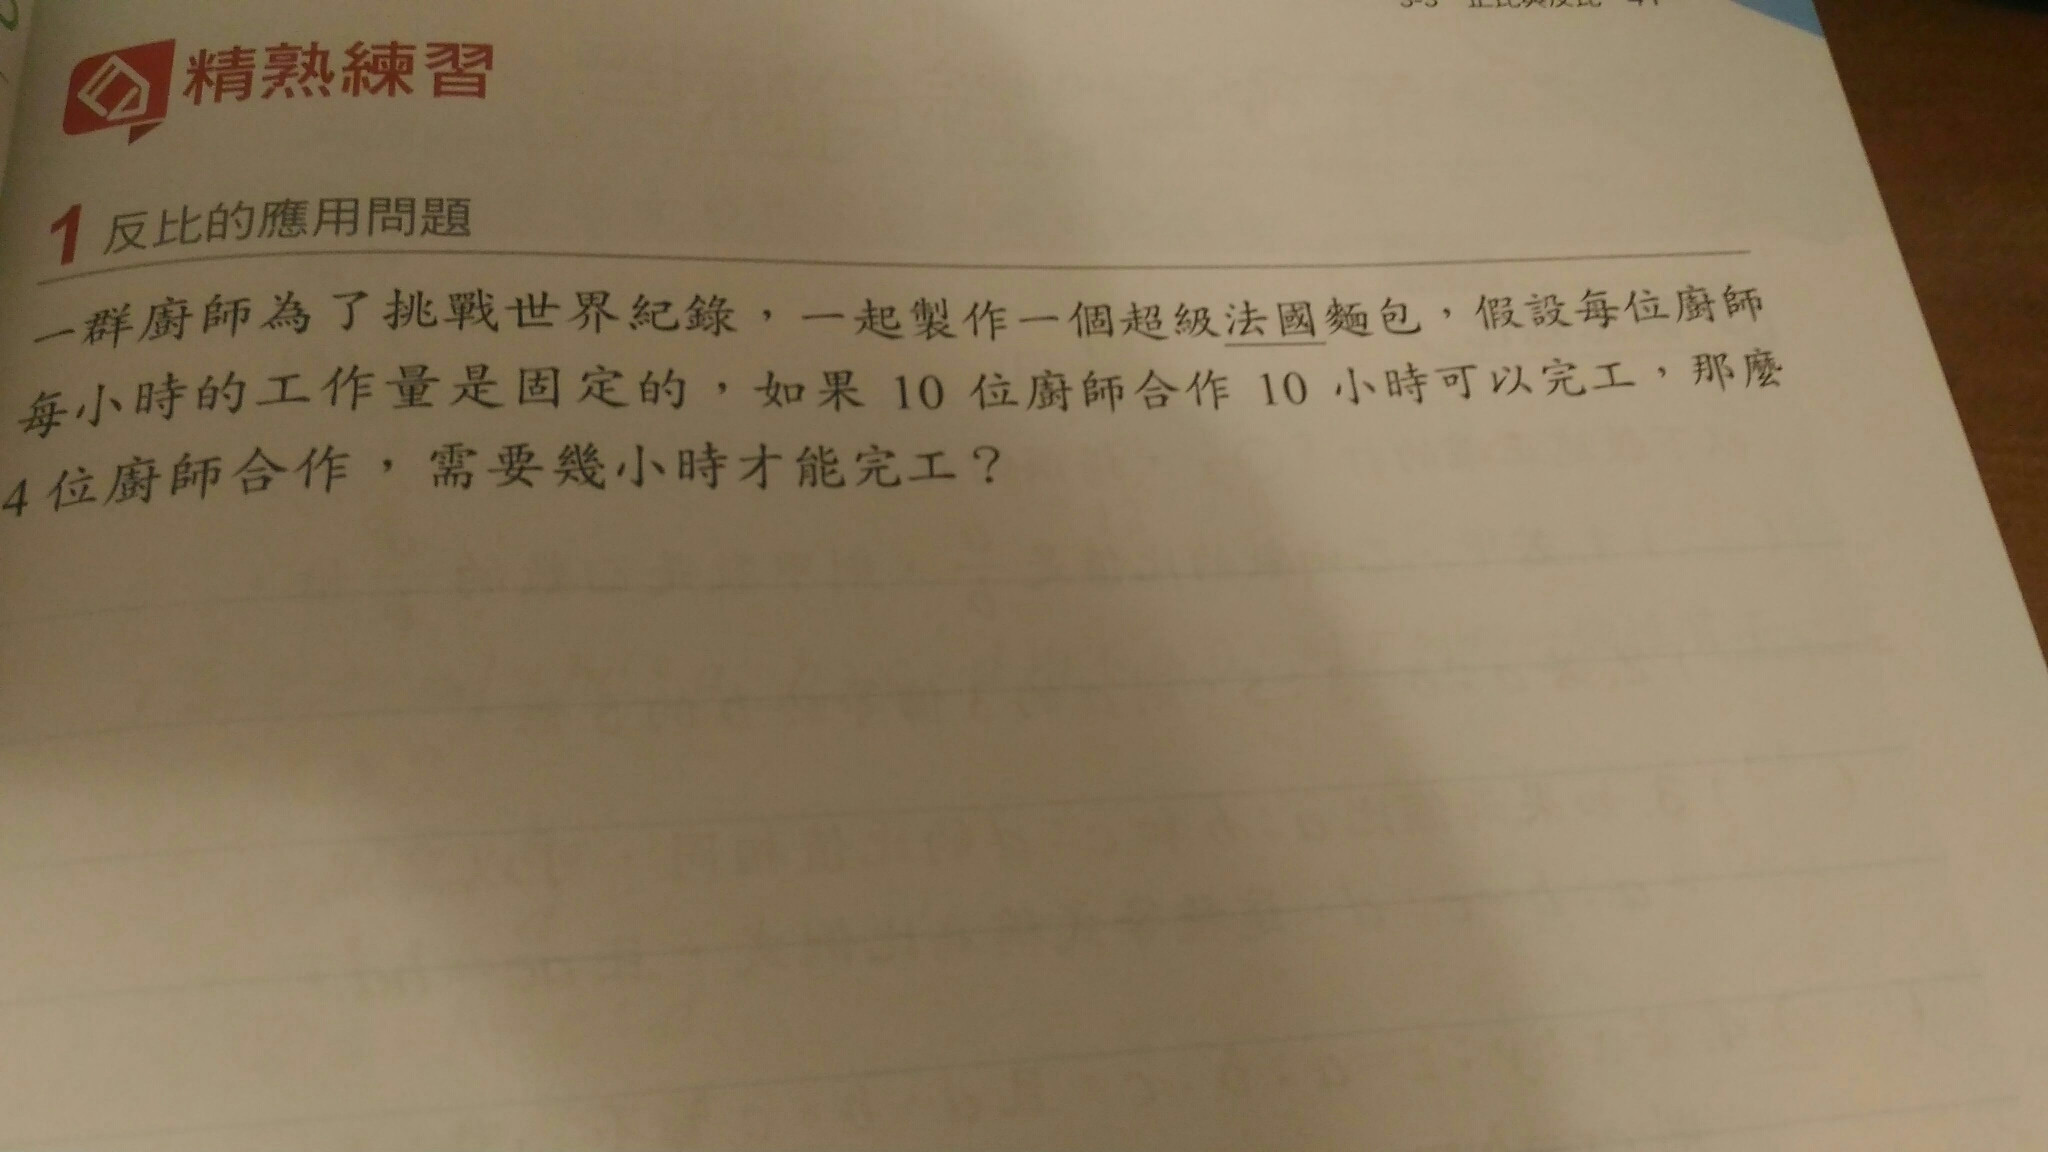 3-3 正比與反比 41
精熟練習
1 反比的應用問題
一群廚師為了挑戰世界紀錄，一起製作一個超級法國麵包，假設每位廚師
每小時的工作量是固定的，如果 10 位廚師合作 10 小時可以完工，那麼
4 位廚師合作，需要幾小時才能完工？